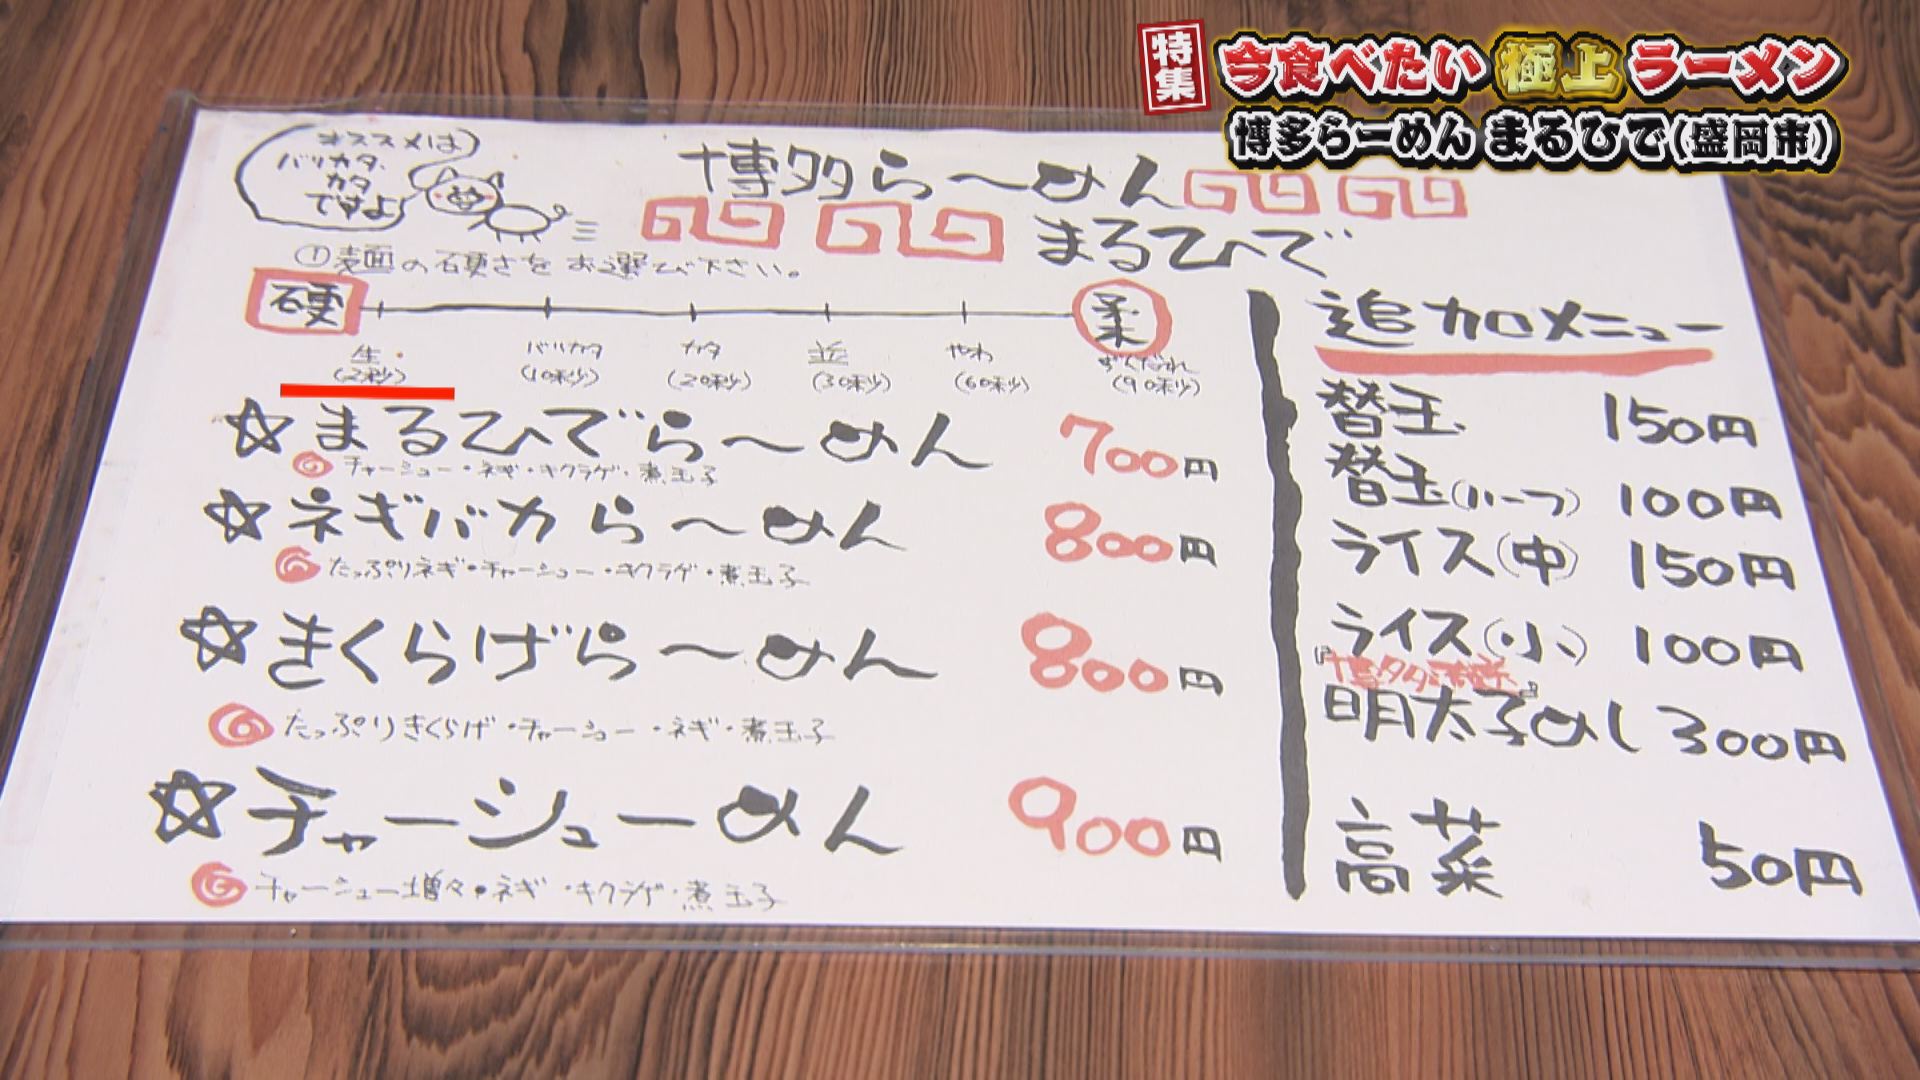 特集
今食べたい極上ラーメン
博多らーめん まるひで(盛岡市)
オススメは
バリカタ、
カタ
ですよ
博多ら〜めん
まるひで
①麺の硬さをお選び下さい。
硬
柔
生 バリカタ カタ 並 やわ ずんだれ
(2秒) (10秒) (20秒) (30秒) (60秒) (90秒)
☆まるひでら〜めん 700円
チャーシュー・ネギ・キクラゲ・煮玉子
☆ネギバカら〜めん 800円
たっぷりネギ・チャーシュー・キクラゲ・煮玉子
☆きくらげら〜めん 800円
たっぷりきくらげ・チャーシュー・ネギ・煮玉子
☆チャーシューめん 900円
チャーシュー増々・ネギ・キクラゲ・煮玉子
追加メニュー
替玉 150円
替玉(ハーフ) 100円
ライス(中) 150円
ライス(小) 100円
明太子めし 300円
高菜 50円